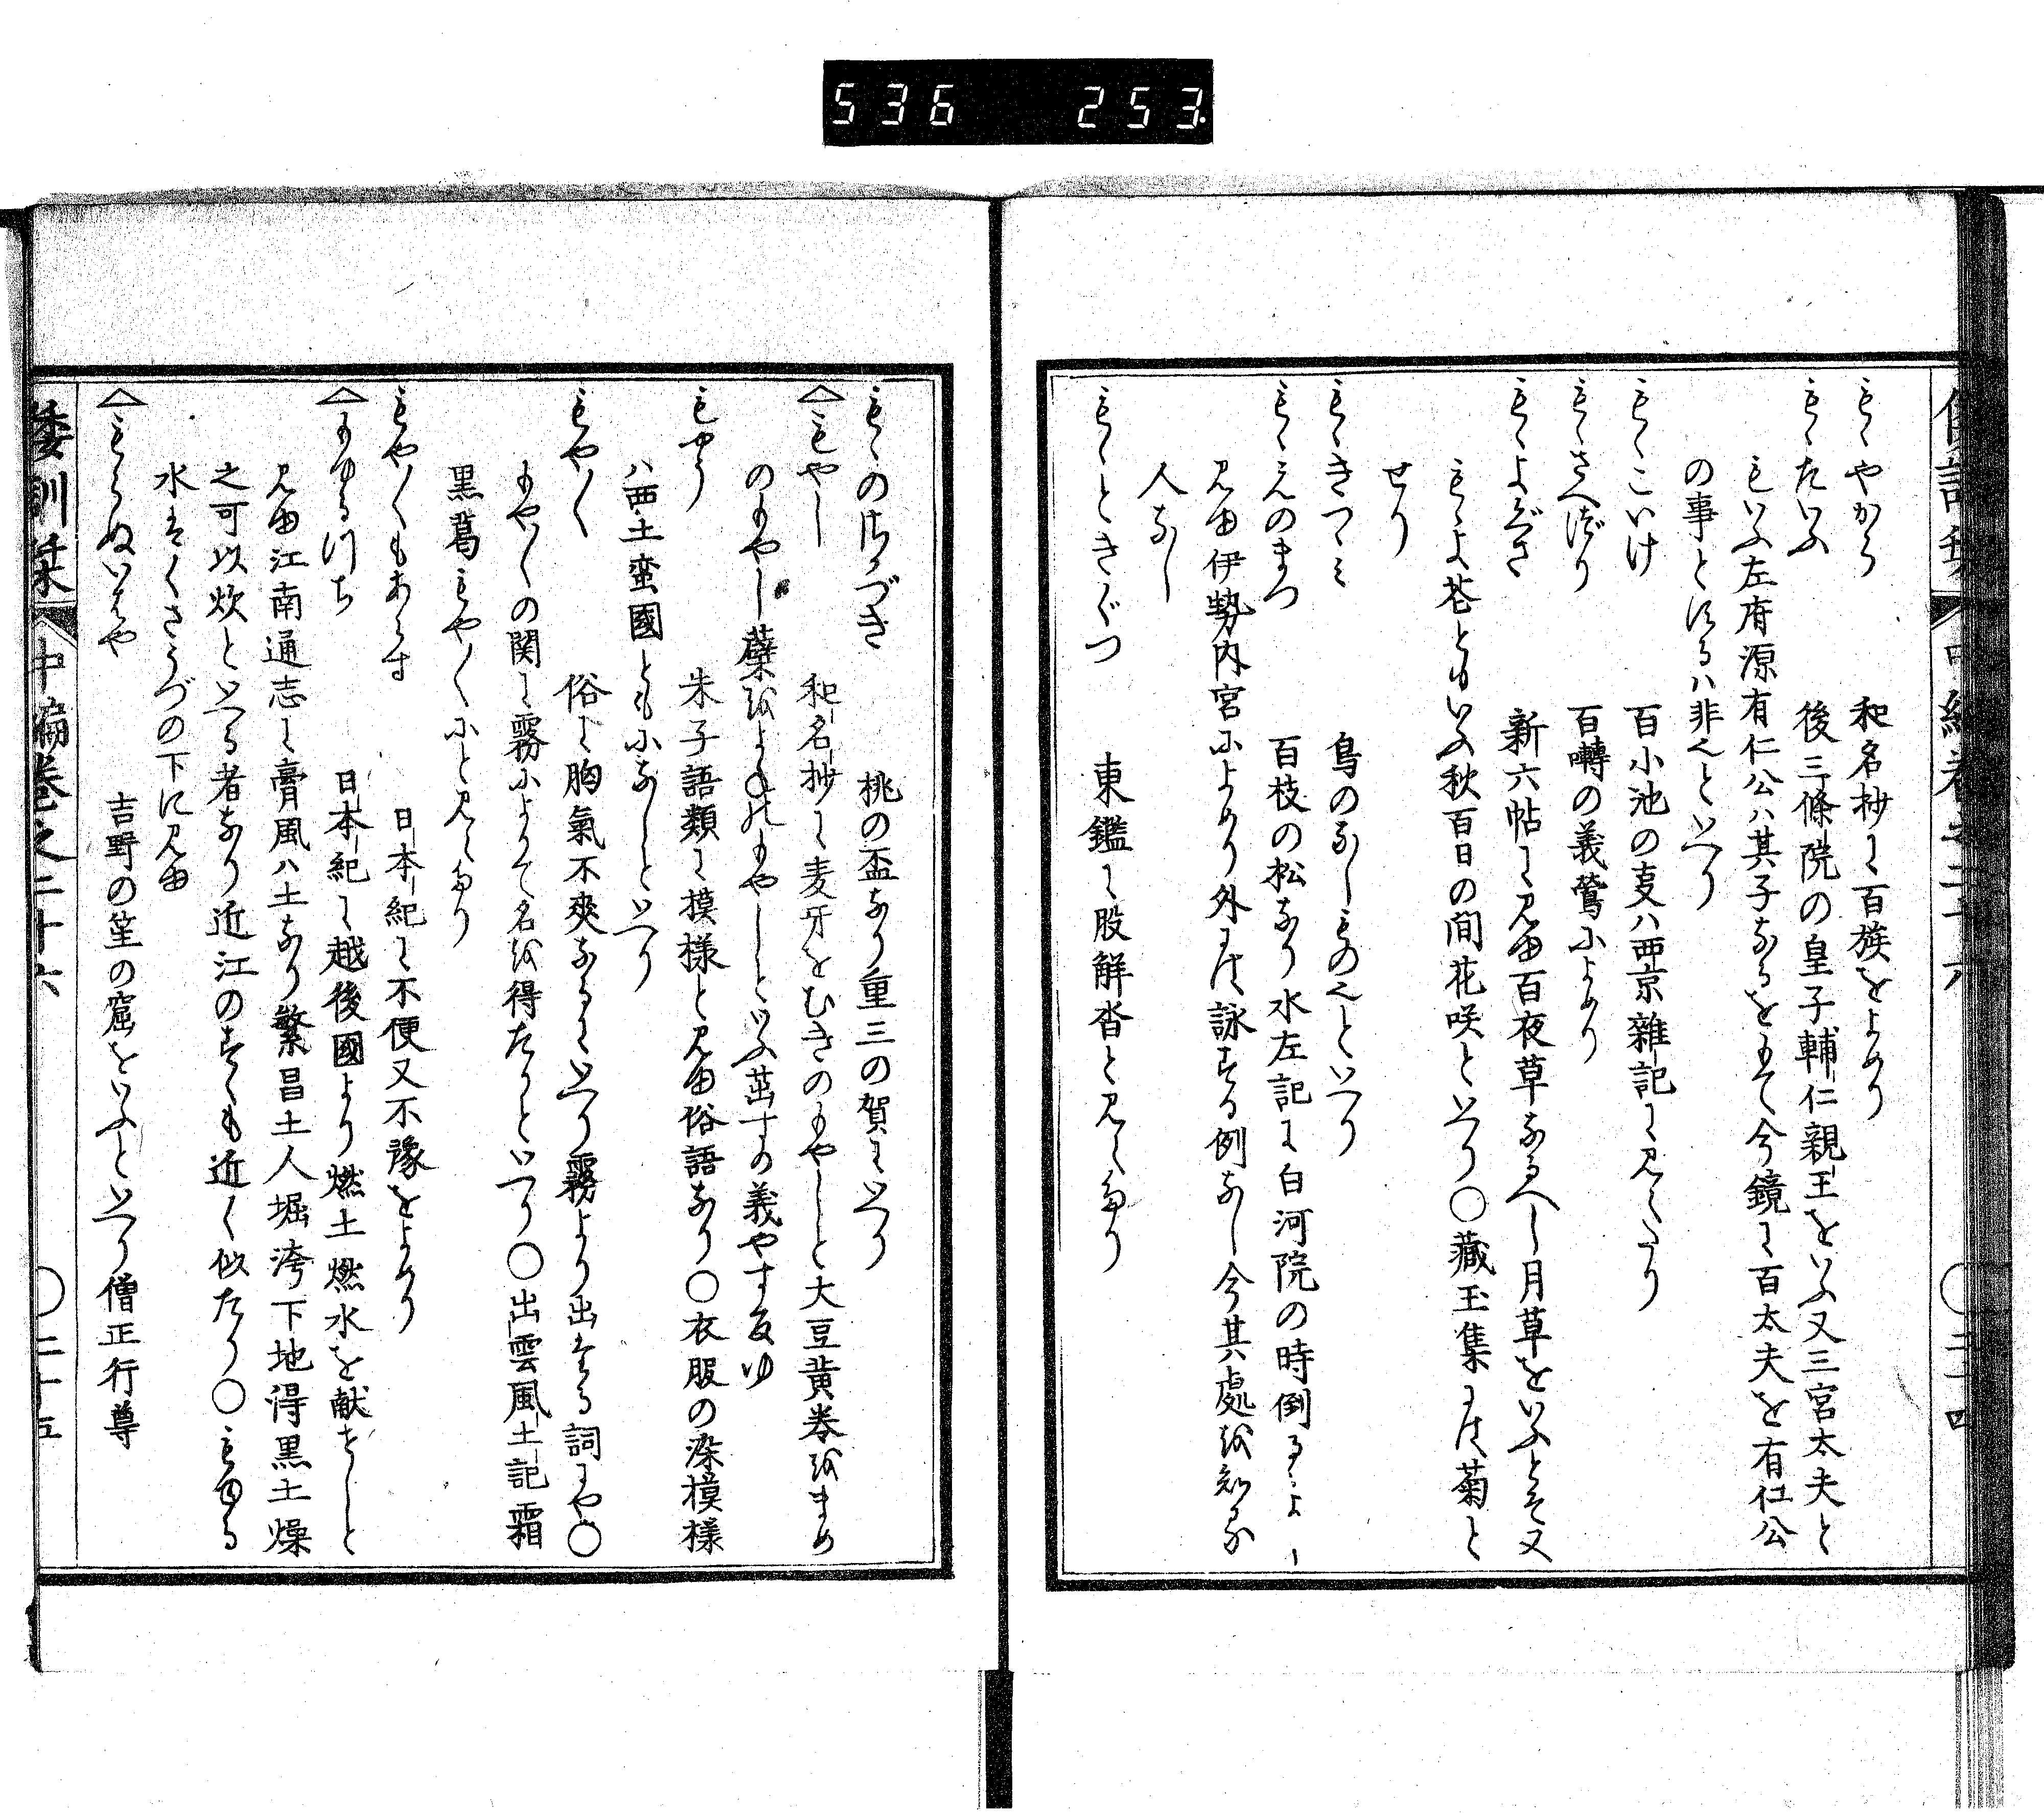 536 253
もゝやから 和名抄に百族をよめり
もゝたいふ 後三條院の皇子輔仁親王をいふ又三宮太夫と
もいふ左府源有仁公ハ其子なるをもて今鏡に百太夫を有仁公
の事とするハ非也といへり
もゝこいけ 百小池の支ハ西京雜記に見えたり
もゝさへづり 百囀の義鶯によめり
もゝよぐさ 新六帖に見ゆ百夜草なるへし月草をいふとそ又
もゝよ花ともいふ秋百日の間花咲といへり〇藏玉集には菊と
せり
もゝきつゝミ 鳥のなしもの也といへり
もゝえのまつ 百枝の松なり水左記に白河院の時倒るゝよし
見ゆ伊勢内宮によめり外には詠する例なし今其處を知る
人なし
もゝときぐつ 東鑑に股解沓と見えたり
もゝのさかづき 桃の盃なり重三の賀にいへり
へもやし 和名抄に麦牙をむきのもやしと大豆黄巻をまめ
のもやし蘗をよねのもやしといふ茁すの義やす反ゆ
もやう 朱子語類に模様と見ゆ俗語なり〇衣服の染模様
ハ西土蛮國ともになしといへり
もや〱 俗に胸氣不爽なるにいへり霧より出たる詞にや〇
もや〱の関に霧によりて名を得たりといへり〇出雲風土記霜
黒葛もや〱にと見えたり
もや〱もあらす 日本紀に不便又不豫をよめり
へもゆるつち 日本紀に越後國より燃土燃水を献せしと
見ゆ江南通志に膏風ハ土なり繁昌土人堀洿下地得黒土燥
之可以炊といへる者なり近江のすくも近く似たり〇もゆる
水はくさうづの下に見ゆ
へもらぬいはや 吉野の笙の窟をいふといへり僧正行尊
倭訓栞 中編巻之二十六 〇二十五